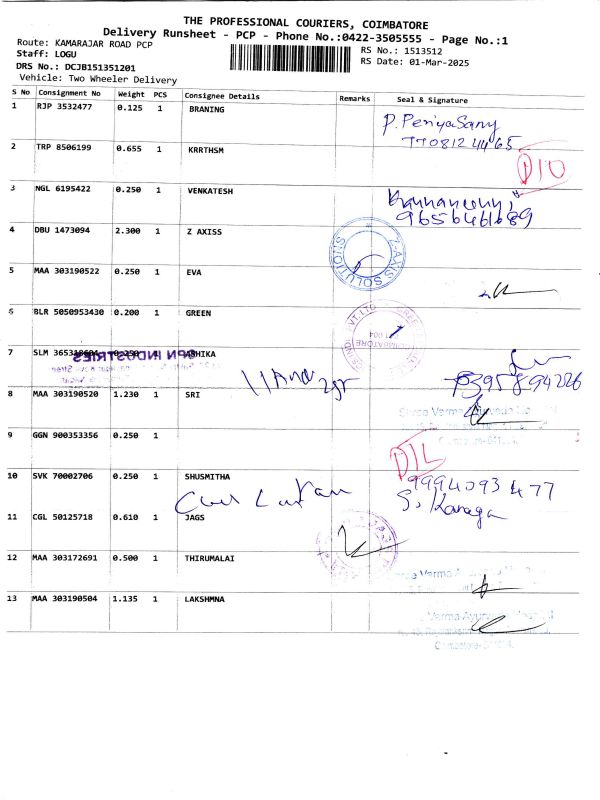 THE PROFESSIONAL COURIERS, COIMBATORE
Delivery Runsheet - PCP - Phone No.:0422-3505555 - Page No.:1
Route: KAMARAJAR ROAD PCP
Staff: LOGU
DRS No.: DCJB151351201
Vehicle: Two Wheeler Delivery
RS No.: 1513512
RS Date: 01-Mar-2025
S No Consignment No Weight PCS Consignee Details Remarks Seal & Signature
1 RJP 3532477 0.125 1 BRANING
P. PeriyaSamy
2 TRP 8506199 0.655 1 KRRTHSM
3 NGL 6195422 0.250 1 VENKATESH
4 DBU 1473094 2.300 1 Z AXISS
Z-AXIS SOLUTIONS
5 MAA 303190522 0.250 1 EVA
6 BLR 5050953430 0.200 1 GREEN
COIMBATORE
7 SLM 0.250 1
GPN INDUSTRIES
8 MAA 303190520 1.230 1 SRI
9 GGN 900353356 0.250 1
10 SVK 70002706 0.250 1 SHUSMITHA
9994093477
S. Kanaga
11 CGL 50125718 0.610 1 JAGS
12 MAA 303172691 0.500 1 THIRUMALAI
13 MAA 303190504 1.135 1 LAKSHMNA